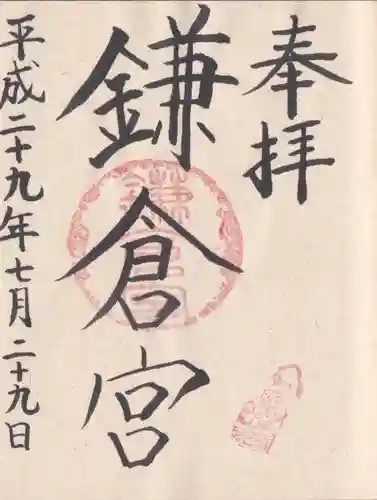 奉拝
鎌倉宮
平成二十九年七月二十九日
鎌倉宮